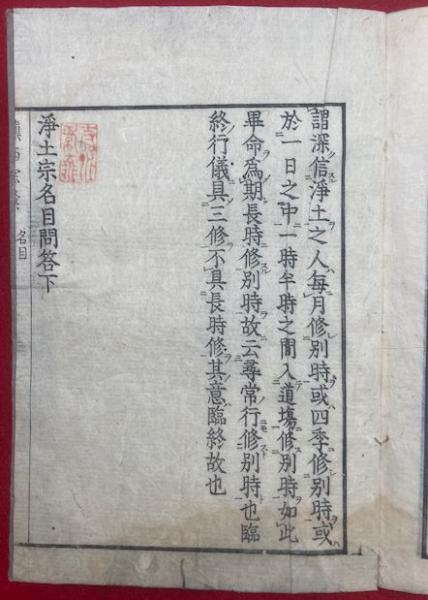 謂深信淨土之人每月修別時或四季修別時或
於一日之中一時半時之間入道場修別時如此
畢命爲期長時修別時故云尋常行修別時也臨
終行儀具三修不具長時修其意臨終故也
淨土宗名目問答下
名目